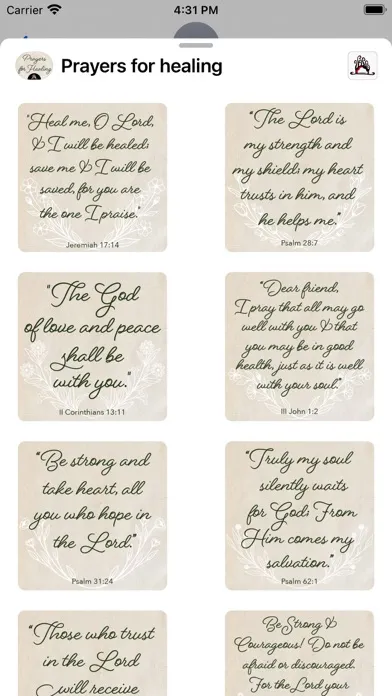 Carrier 4:31 PM
Prayers for Healing
Prayers for healing
"Heal me, O Lord,
& I will be healed;
save me & I will be
saved, for you are
the one I praise."
Jeremiah 17:14
"The Lord is
my strength and
my shield; my heart
trusts in him, and
he helps me."
Psalm 28:7
"The God
of love and peace
shall be
with you."
II Corinthians 13:11
"Dear friend,
I pray that all may go
well with you & that
you may be in good
health, just as it is well
with your soul."
III John 1:2
"Be strong and
take heart, all
you who hope in
the Lord."
Psalm 31:24
"Truly my soul
silently waits
for God; From
Him comes my
salvation."
Psalm 62:1
"Those who trust
in the Lord
will receive
Be Strong &
Courageous! Do not be
afraid or discouraged.
For the Lord your